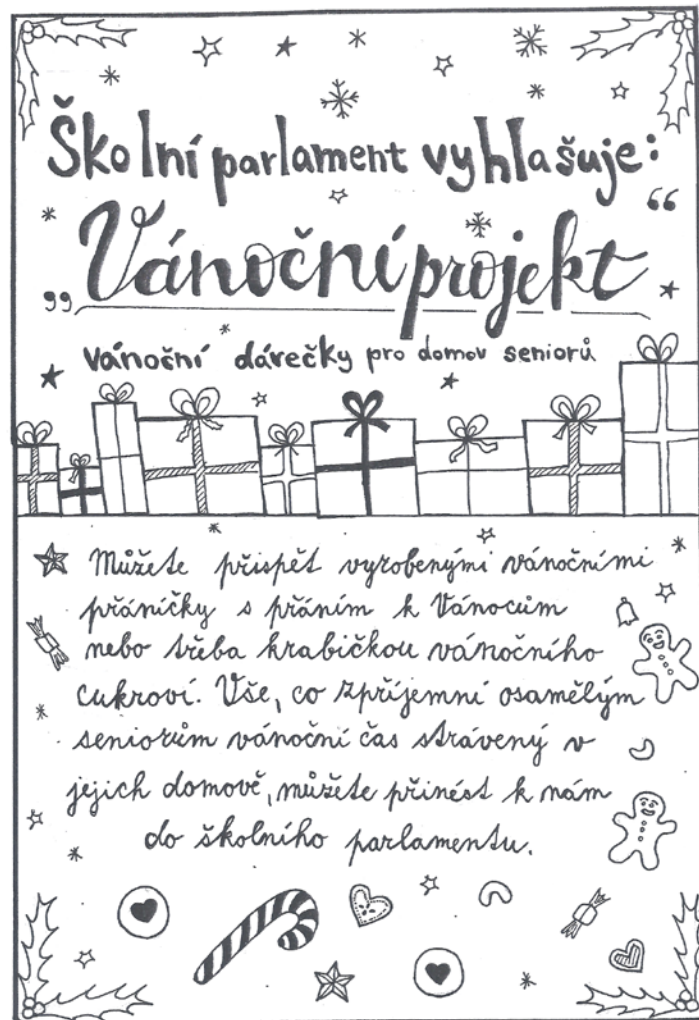 Školní parlament vyhlašuje:
„Vánoční projekt“
vánoční dárečky pro domov seniorů
Můžete přispět vyrobenými vánočními
přáníčky s přáním k Vánocům
nebo třeba krabičkou vánočního
cukroví. Vše, co zpříjemní osamělým
seniorům vánoční čas strávený v
jejich domově, můžete přinést k nám
do školního parlamentu.